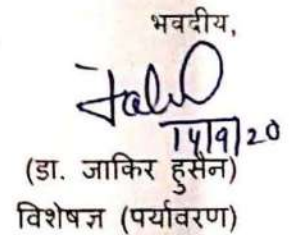 भवदीय,
14/9/20
(डा. जाकिर हुसैन)
विशेषज्ञ (पर्यावरण)